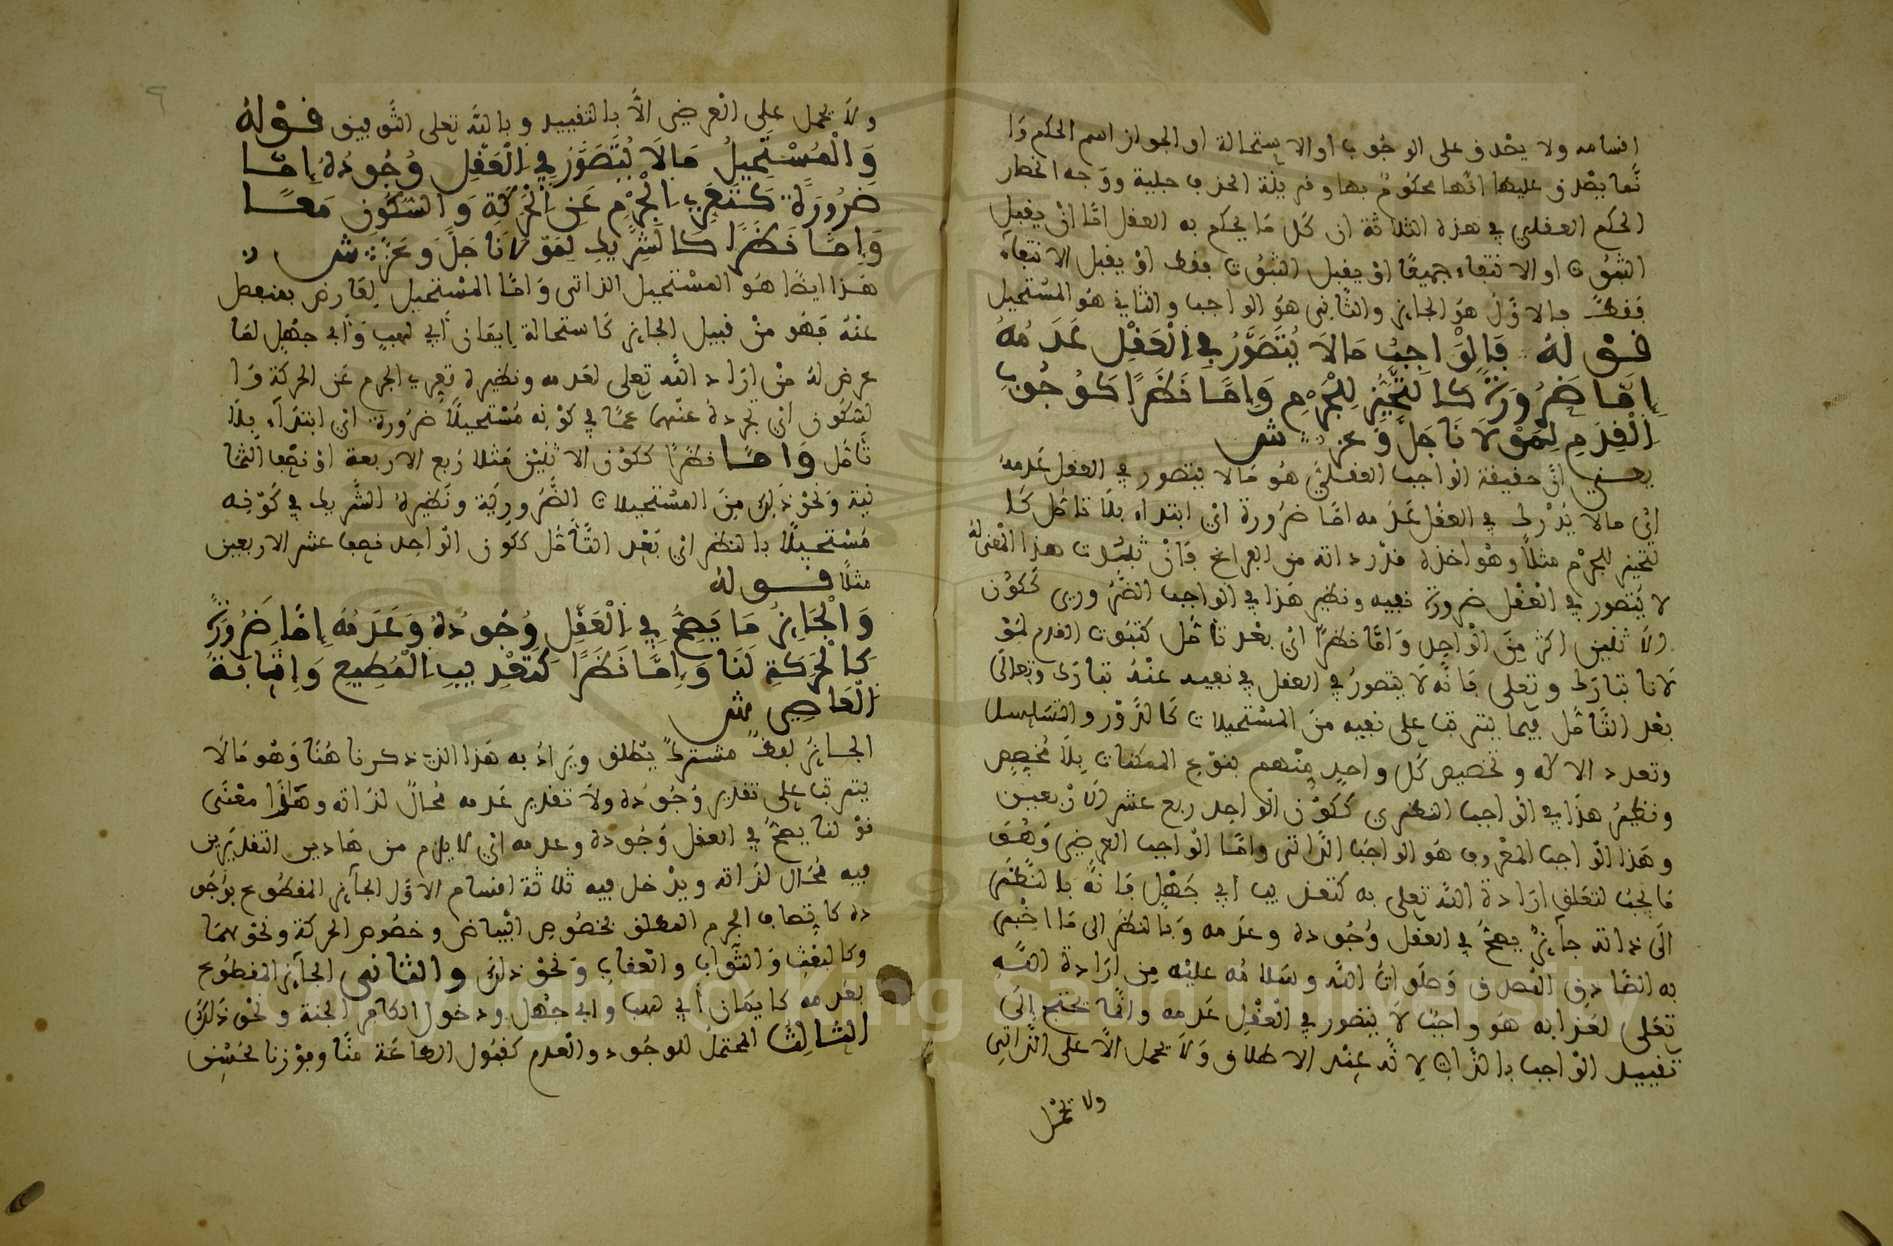 افسامه ولا يصدق على الوجوب او الاستحالة او الجواز اسم الحكم وا
نما يصدق عليها انها محكوم بها وفريقة الحزب جلية ووجه انحصار
الحكم العقلي في هذه الثلاثة ان كل ما يحكم به العقل اما ان يقبل
الثبوت او الانتفاء جميعًا او يقبل الثبوت فقط او يقبل الانتفاء
فقط فالاول هو الجائز والثاني هو الواجب والثالث هو المستحيل
قوله فالواجب ما لا يتصور في العقل عدمه
اما ضرورة كالتحيز للجرم واما نظرا كوجوب
القدم لمولانا جل وعز ش
يعني ان حقيقة الواجب العقلي هو ما لا يتصور في العقل عدمه
اي ما لا يدرك في العقل عدمه اما ضرورة اي ابتداء بلا تأمل كا
لتحيز للجرم مثلا وهو اخذه قدر ذاته من الفراغ فان ثبوت هذا المعنى له
لا يتصور في العقل ضرورة نفيه ونظير هذا في الواجب الضروري ككون
الاثنين اكثر من الواحد واما نظرا اي بعد تأمل كثبوت القدم لمو
لانا تبارك وتعلى فانه لا يتصور في العقل نفيه عنه تبارك وتعالى
بعد التأمل فيما يترتب على نفيه من المستحيلات كالدور والتسلسل
وتعدد الاله وتخصيص كل واحد منهم بنوع الممكنات بلا مخصص
ونظير هذا في الواجب النظري ككون الواحد ربع عشر الاربعين
وهذا الواجب المعروف هو الواجب الذاتي واما الواجب العرضي وهو
ما يجب لتعلق ارادة الله تعلى به كتعذيب ابي جهل فانه بالنظر
الى ذاته جائز يصح في العقل وجوده وعدمه وبالنظر الى ما اخبر
به الصادق المصدق وصلوات الله وسلامه عليه من ارادة الله
تعلى لعذابه هو واجب لا يتصور في العقل عدمه وانما يحتج الى
تقييد الواجب بالذات لانه عند الاطلاق ولا يحمل الا على الذاتي
ولا يحمل
ولا يحمل على العرضي الا بالتقييد وبالله تعلى التوفيق قوله
والمستحيل ما لا يتصور في العقل وجوده اما
ضرورة كتعري الجرم عن الحركة والسكون معا
واما نظرا كالشريك لمولانا جل وعز ش
هذا ايضا هو المستحيل الذاتي واما المستحيل لعارض منفصل
عنه فهو من قبيل الجائز كاستحالة ايمان ابي لهب وابي جهل لما
عرض له من ارادة الله تعلى لعدمه ونظيره تعري الجرم عن الحركة وا
لسكون اي تجرده عنهما معا في كونه مستحيلا ضرورة اي ابتداء بلا
تأمل واما نظرا ككون الاثنين مثلا ربع الاربعة او نصف الثما
نية ونحو ذلك من المستحيلات الضرورية ونظيره الشريك في كونه
مستحيلا بالنظر اي بعد التأمل ككون الواحد نصف عشر الاربعين
مثلا قوله
والجائز ما يصح في العقل وجوده وعدمه اما ضرورة
كالحركة لنا واما نظرا كتعذيب المطيع واثابة
العاصي ش
الجائز لفظ مشترك يطلق ويراد به هذا الذي ذكرنا هنا وهو ما لا
يترتب على تقدير وجوده ولا تقدير عدمه محال لذاته وهذا معنى
قولنا يصح في العقل وجوده وعدمه اي لا يلزم من هاذين التقديرين
فيه محال لذاته ويدخل فيه ثلاثة اقسام الاول الجائز المقطوع بوجو
ده كاتصاف الجرم المطلق بخصوص البياض وخصوص الحركة ونحوهما
وكالبعث والثواب والعقاب ونحو ذلك والثاني الجائز المقطوع
بعدمه كايمان ابي لهب وابي جهل ودخول الكافر الجنة ونحو ذلك
الثالث المحتمل للوجود والعدم كقبول الطاعة منا وفوزنا بحسن